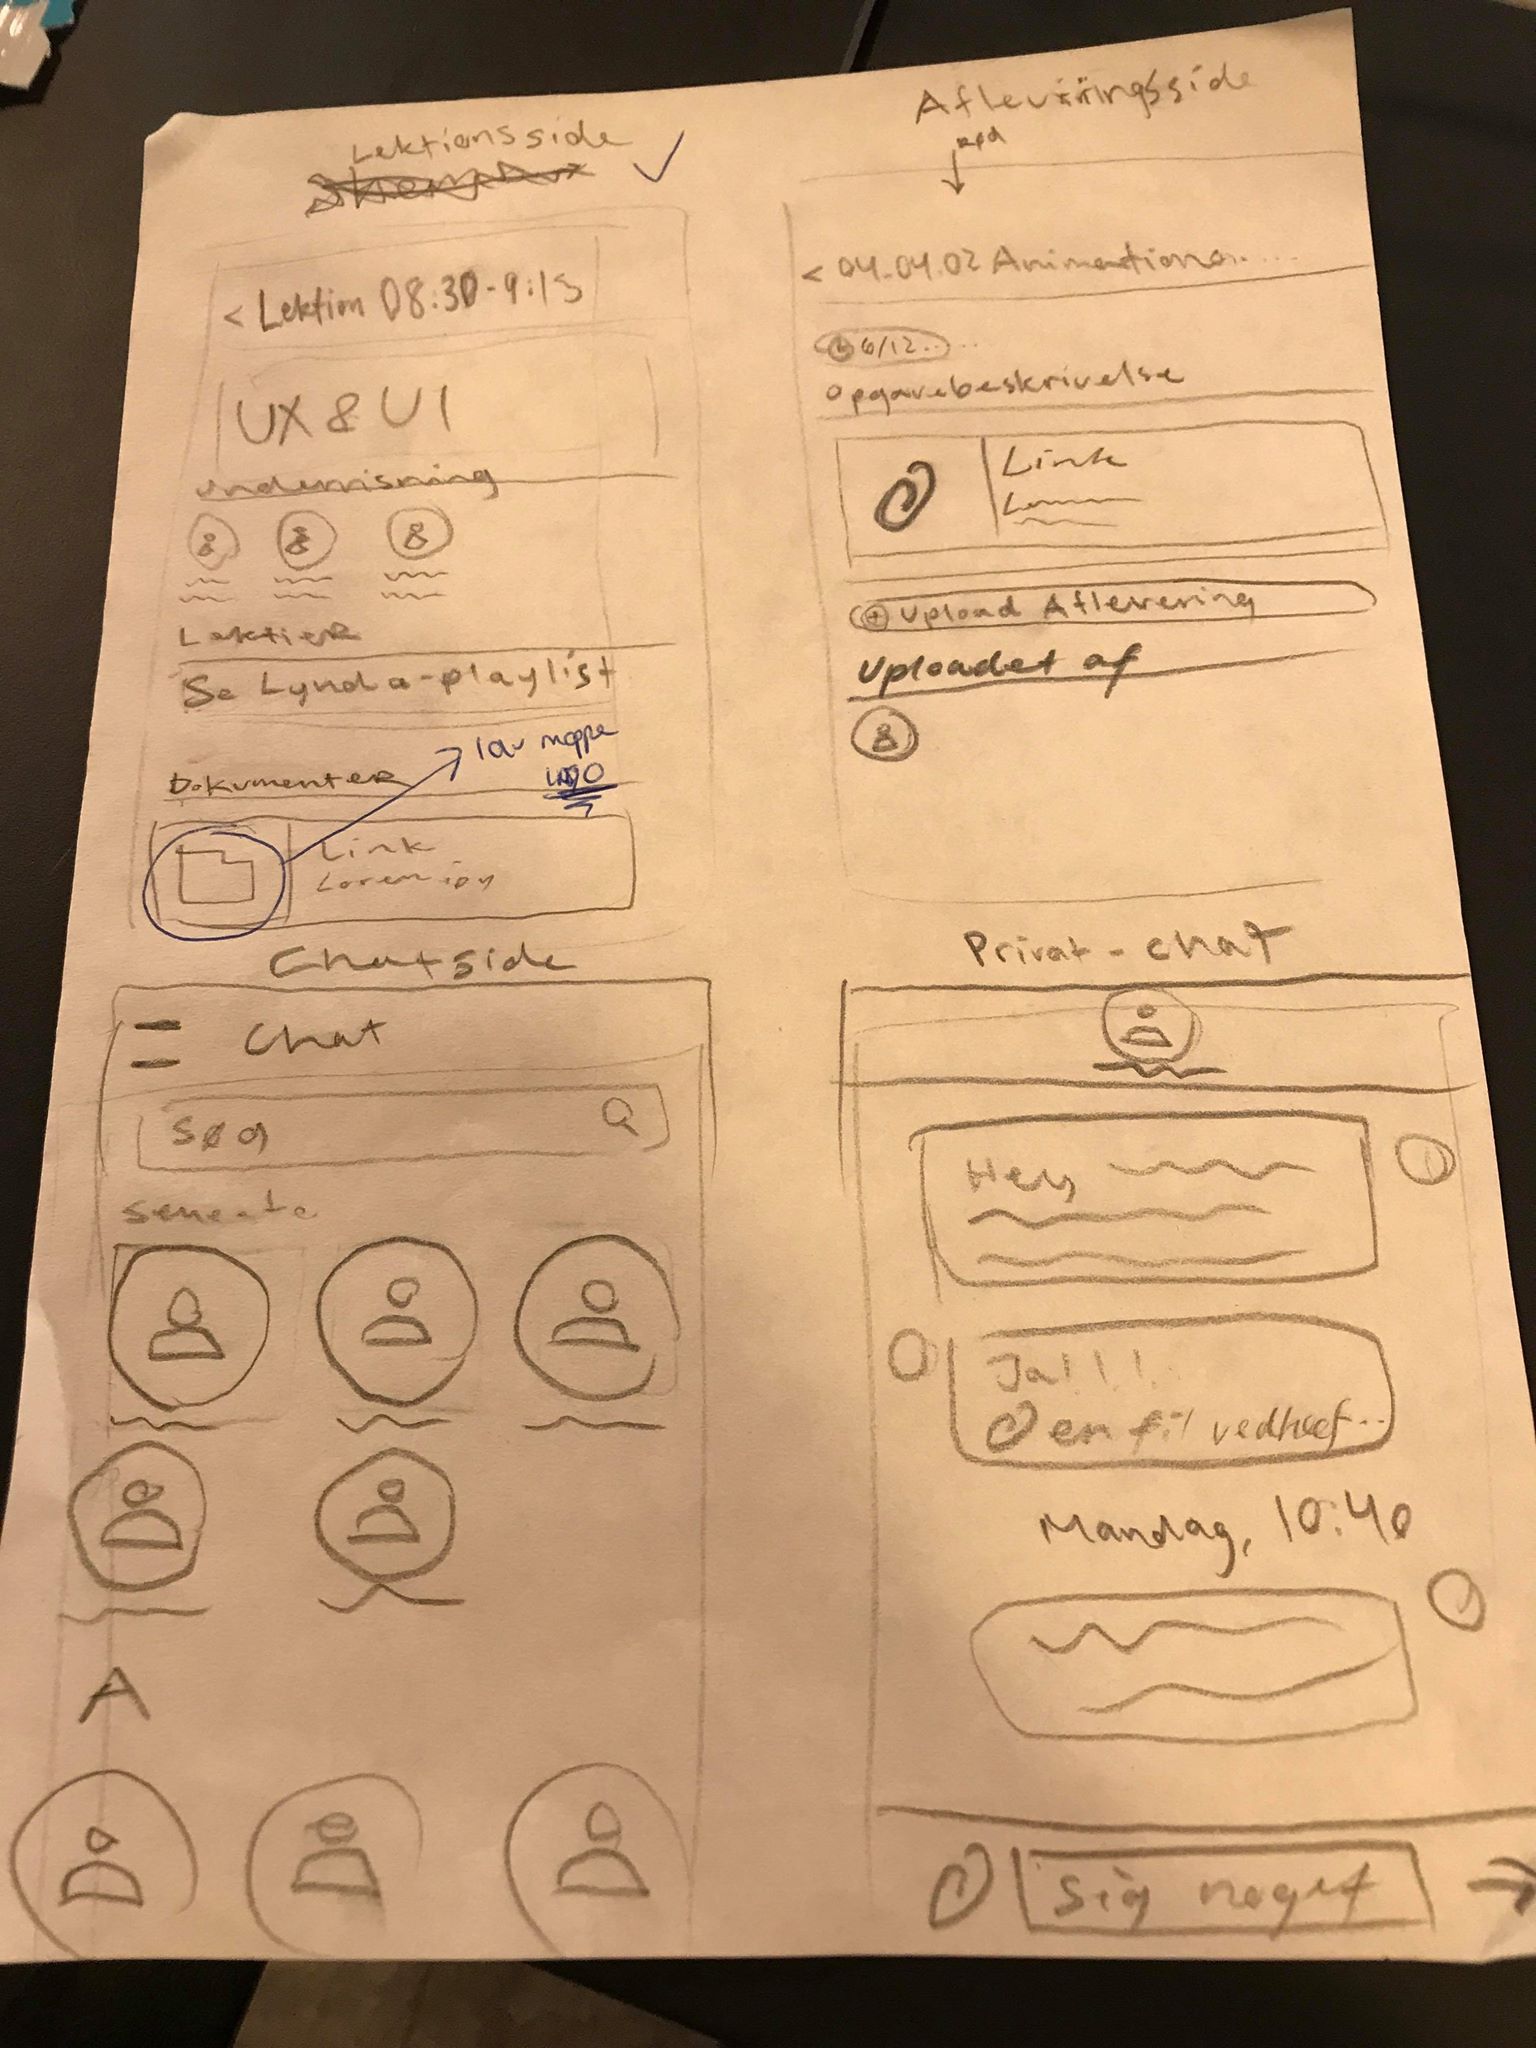 Lektionsside
< Lektion 08:30-9:15
UX & UI
undervisning
Lektier
Se Lynda-playlist
Dokumenter
lav mappe
Link
Lorem ip
Afleveringsside
rød
< 04.04.02 Animation
6/12.....
Opgavebeskrivelse
Link
+ Upload Aflevering
Uploadet af
Chatside
Chat
Søg
Seneste
A
Privat-chat
Hey
Ja!!!
en fil vedhæf...
Mandag, 10:40
Sig noget